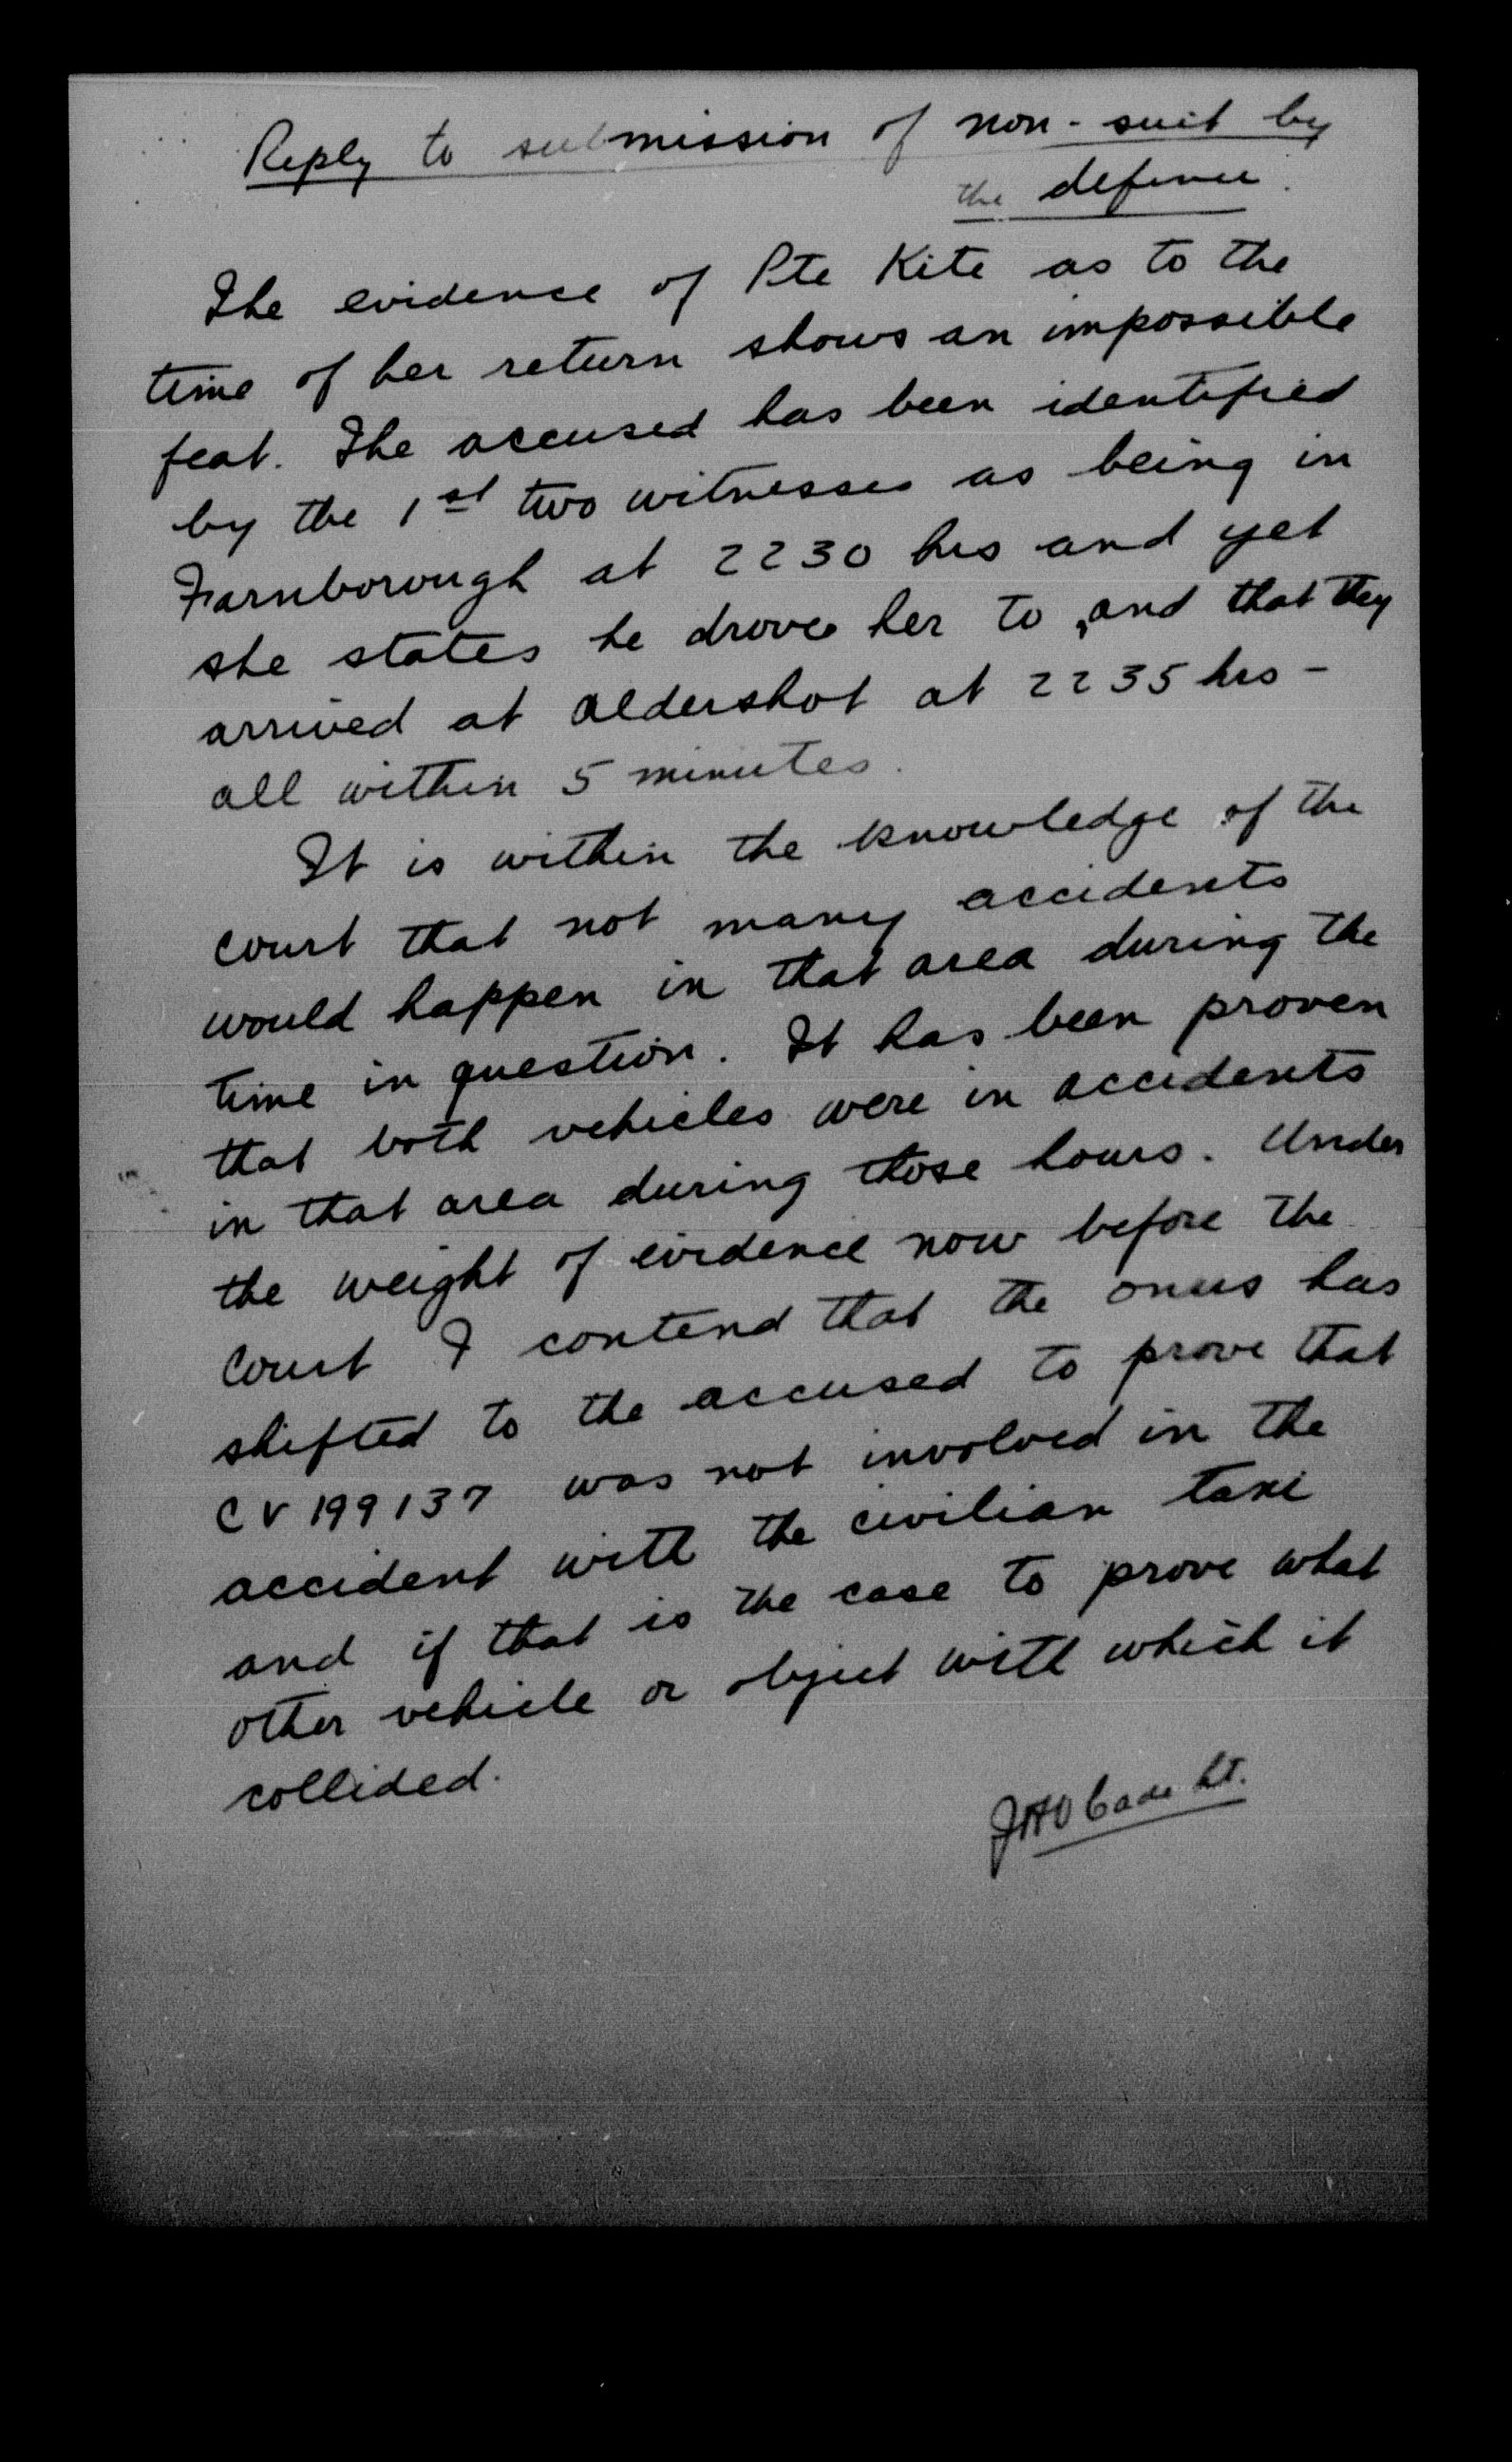 Reply to submission of non-suit by
the defence.
The evidence of Pte Kite as to the
time of her return shows an impossible
feat. The accused has been identified
by the 1st two witnesses as being in
Farnborough at 2230 hrs and yet
she states he drove her to, and that they
arrived at Aldershot at 2235 hrs -
all within 5 minutes.
It is within the knowledge of the
court that not many accidents
would happen in that area during the
time in question. It has been proven
that both vehicles were in accidents
in that area during those hours. Under
the weight of evidence now before the
Court I contend that the onus has
shifted to the accused to prove that
CV 199137 was not involved in the
accident with the civilian taxi
and if that is the case to prove what
other vehicle or object with which it
collided.
Lt.